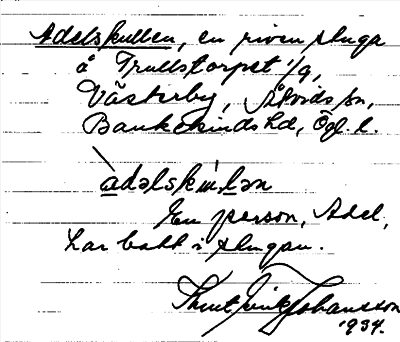 Adelskullen, en riven stuga
å Trullstorpet 1/9,
Västerby, Åtvids sn,
Bankekinds hd, Ögl. l.
adəlskulən
En person, Adel,
har bott i stugan.
Knut Erik Johansson
1934.